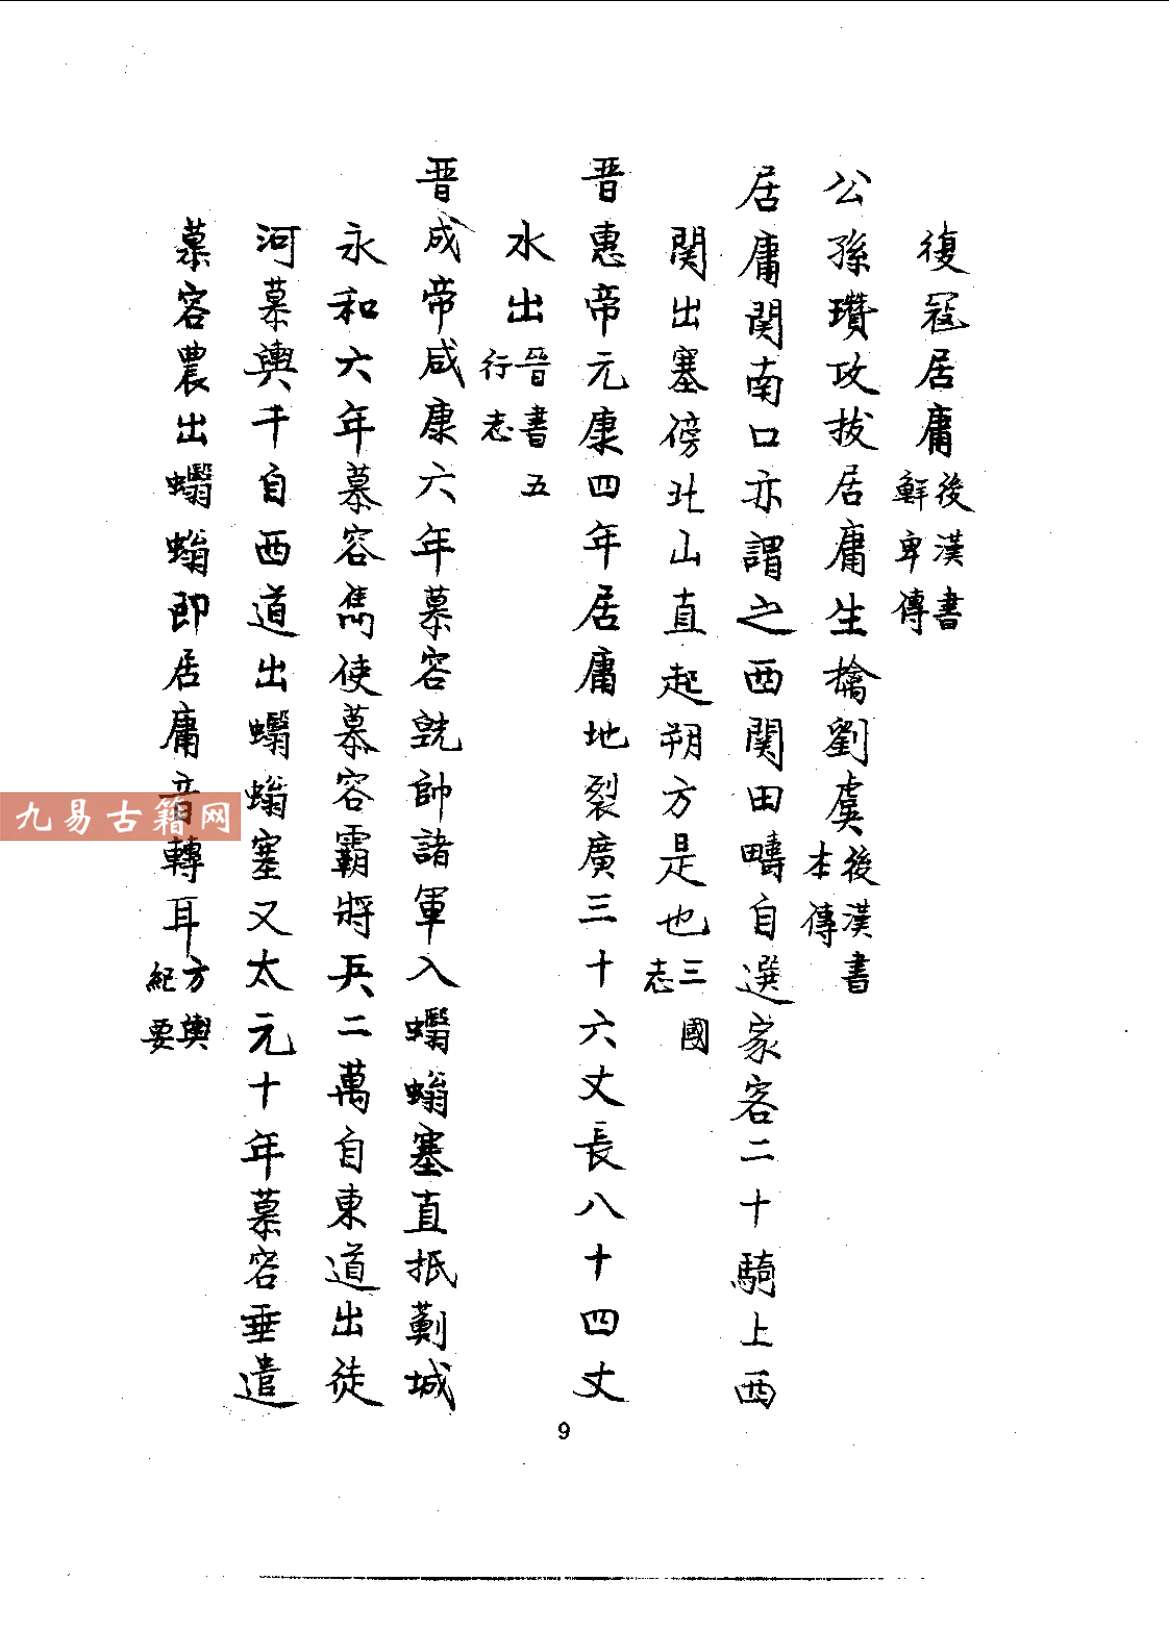 復冦居庸後漢書鮮卑傳
公孫瓚攻拔居庸生擒劉虞後漢書本傳
居庸関南口亦謂之西関田疇自選家客二十騎上西
関出塞傍北山直起朔方是也三國志
晋惠帝元康四年居庸地裂廣三十六丈長八十四丈
水出晉書五行志
晋成帝咸康六年慕容皝帥諸軍入蠮螉塞直抵薊城
永和六年慕容雋使慕容霸將兵二萬自東道出徒
河慕輿干自西道出蠮螉塞又太元十年慕容垂遣
慕容農出蠮螉即居庸音轉耳方輿紀要
9
九易古籍网